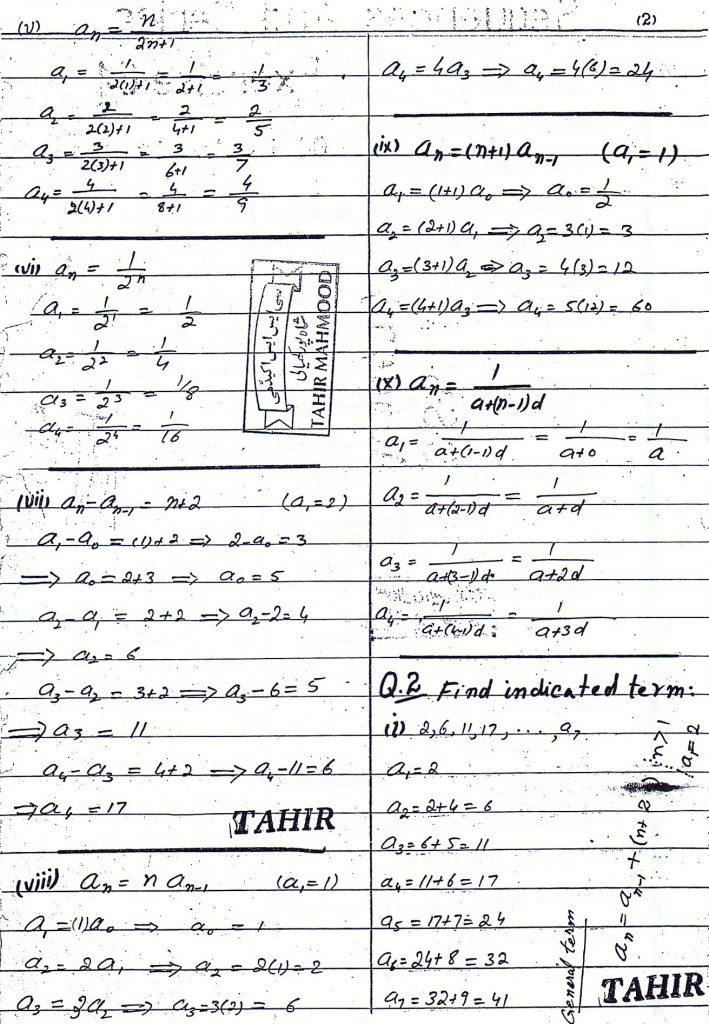 (2)
(v) aₙ = n/2n+1
a₁ = 1/2(1)+1 = 1/2+1 = 1/3
a₂ = 2/2(2)+1 = 2/4+1 = 2/5
a₃ = 3/2(3)+1 = 3/6+1 = 3/7
a₄ = 4/2(4)+1 = 4/8+1 = 4/9
(vi) aₙ = 1/2ⁿ
a₁ = 1/2¹ = 1/2
a₂ = 1/2² = 1/4
a₃ = 1/2³ = 1/8
a₄ = 1/2⁴ = 1/16
TAHIR MAHMOOD
(vii) aₙ - aₙ₋₁ = n+2 (a₁=2)
a₁ - a₀ = (1)+2 ⇒ 2-a₀ = 3
⇒ a₀ = 2+3 ⇒ a₀ = 5
a₂ - a₁ = 2+2 ⇒ a₂-2 = 4
⇒ a₂ = 6
a₃ - a₂ = 3+2 ⇒ a₃-6 = 5
⇒ a₃ = 11
a₄ - a₃ = 4+2 ⇒ a₄-11 = 6
⇒ a₄ = 17
TAHIR
(viii) aₙ = n aₙ₋₁ (a₁=1)
a₁ = (1)a₀ ⇒ a₀ = 1
a₂ = 2a₁ ⇒ a₂ = 2(1) = 2
a₃ = 3a₂ ⇒ a₃ = 3(2) = 6
a₄ = 4a₃ ⇒ a₄ = 4(6) = 24
(ix) aₙ = (n+1) aₙ₋₁ (a₁=1)
a₁ = (1+1) a₀ ⇒ a₀ = 1/2
a₂ = (2+1) a₁ ⇒ a₂ = 3(1) = 3
a₃ = (3+1) a₂ ⇒ a₃ = 4(3) = 12
a₄ = (4+1) a₃ ⇒ a₄ = 5(12) = 60
(x) aₙ = 1/a+(n-1)d
a₁ = 1/a+(1-1)d = 1/a+0 = 1/a
a₂ = 1/a+(2-1)d = 1/a+d
a₃ = 1/a+(3-1)d = 1/a+2d
a₄ = 1/a+(4-1)d = 1/a+3d
Q.2 Find indicated term:
(i) 2, 6, 11, 17, ..., a₇
a₁ = 2
a₂ = 2+4 = 6
a₃ = 6+5 = 11
a₄ = 11+6 = 17
a₅ = 17+7 = 24
a₆ = 24+8 = 32
a₇ = 32+9 = 41
General term
aₙ = aₙ₋₁ + (n+2) n>1
a₁=2
TAHIR